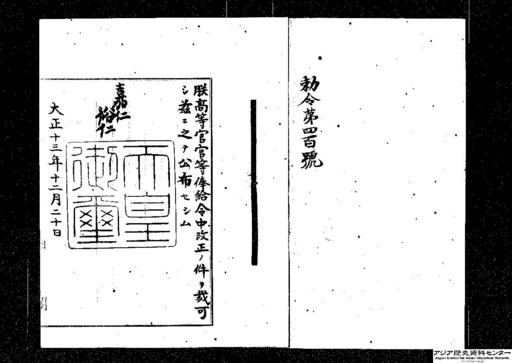 勅令第四百號
朕高等官官等俸給令中改正ノ件ヲ裁可
シ茲ニ之ヲ公布セシム
嘉仁
裕仁
天皇
御璽
大正十三年十二月二十日
アジア歴史資料センター
Japan Center for Asian Historical Records